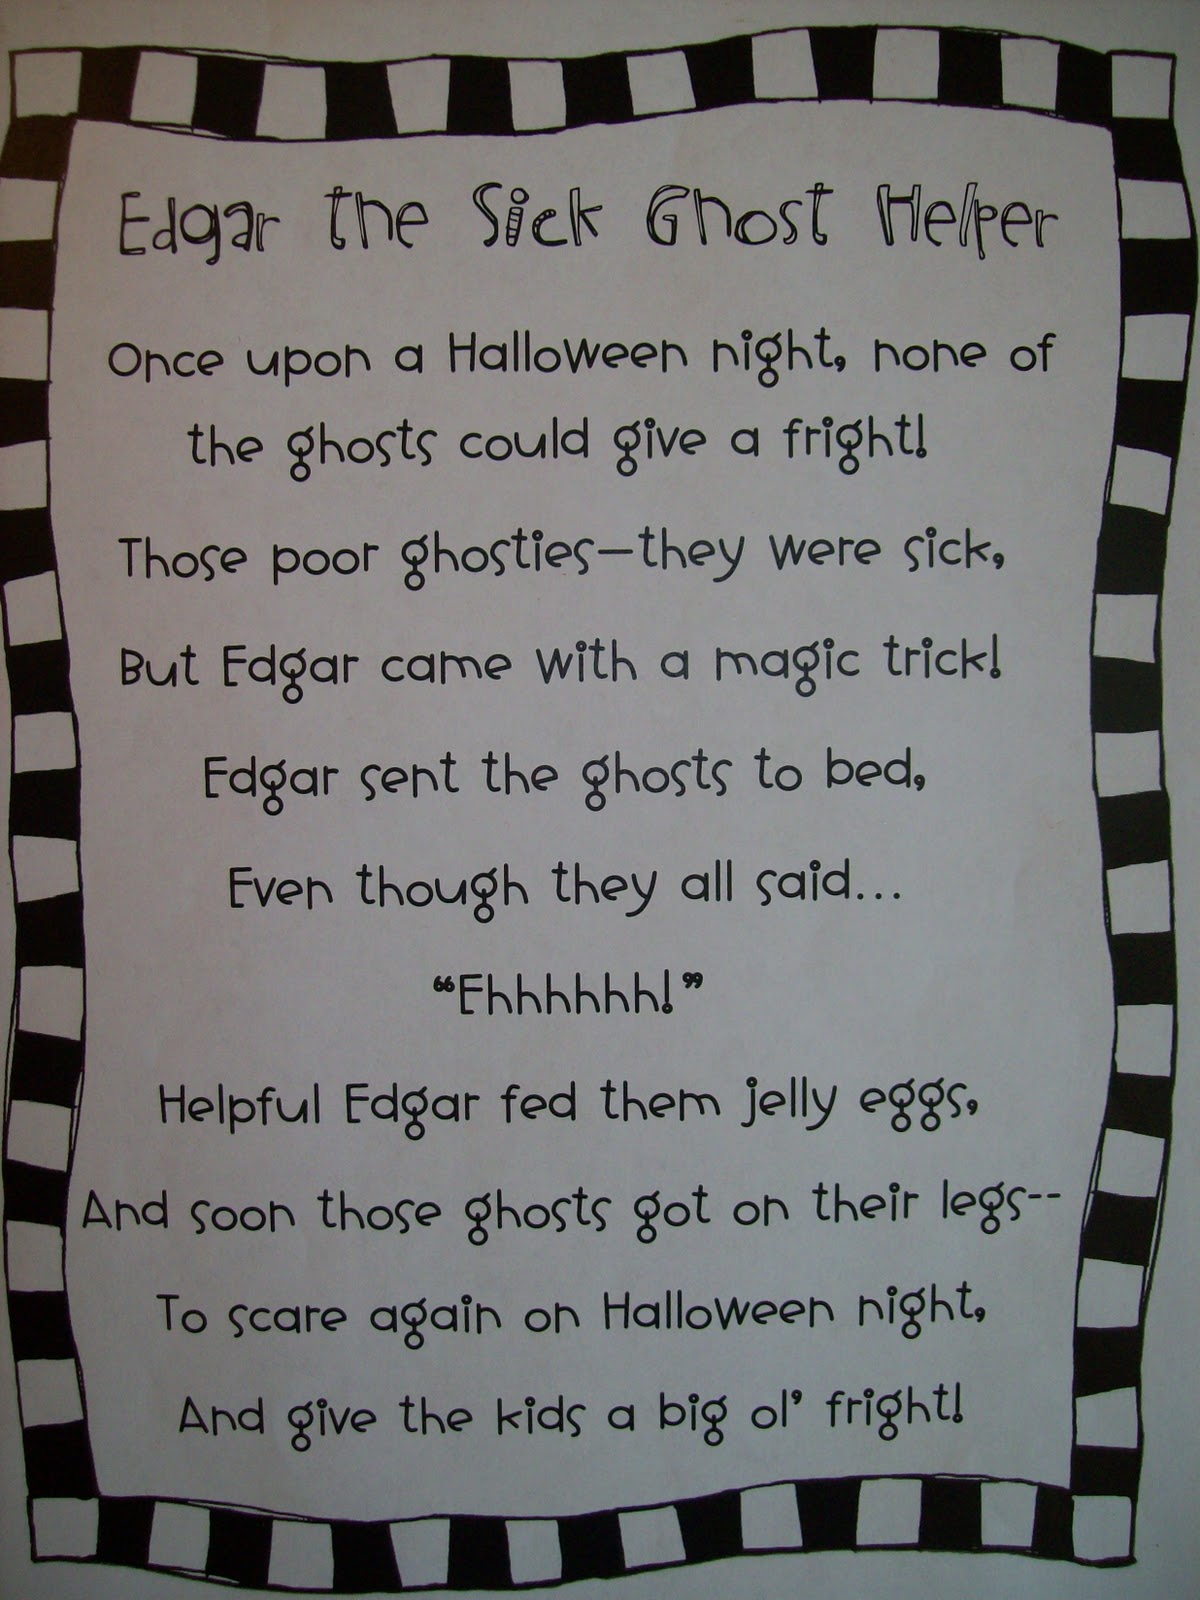 Edgar the Sick Ghost Helper
Once upon a Halloween night, none of
the ghosts could give a fright!
Those poor ghosties—they were sick,
But Edgar came with a magic trick!
Edgar sent the ghosts to bed,
Even though they all said...
“Ehhhhhhh!”
Helpful Edgar fed them jelly eggs,
And soon those ghosts got on their legs--
To scare again on Halloween night,
And give the kids a big ol’ fright!